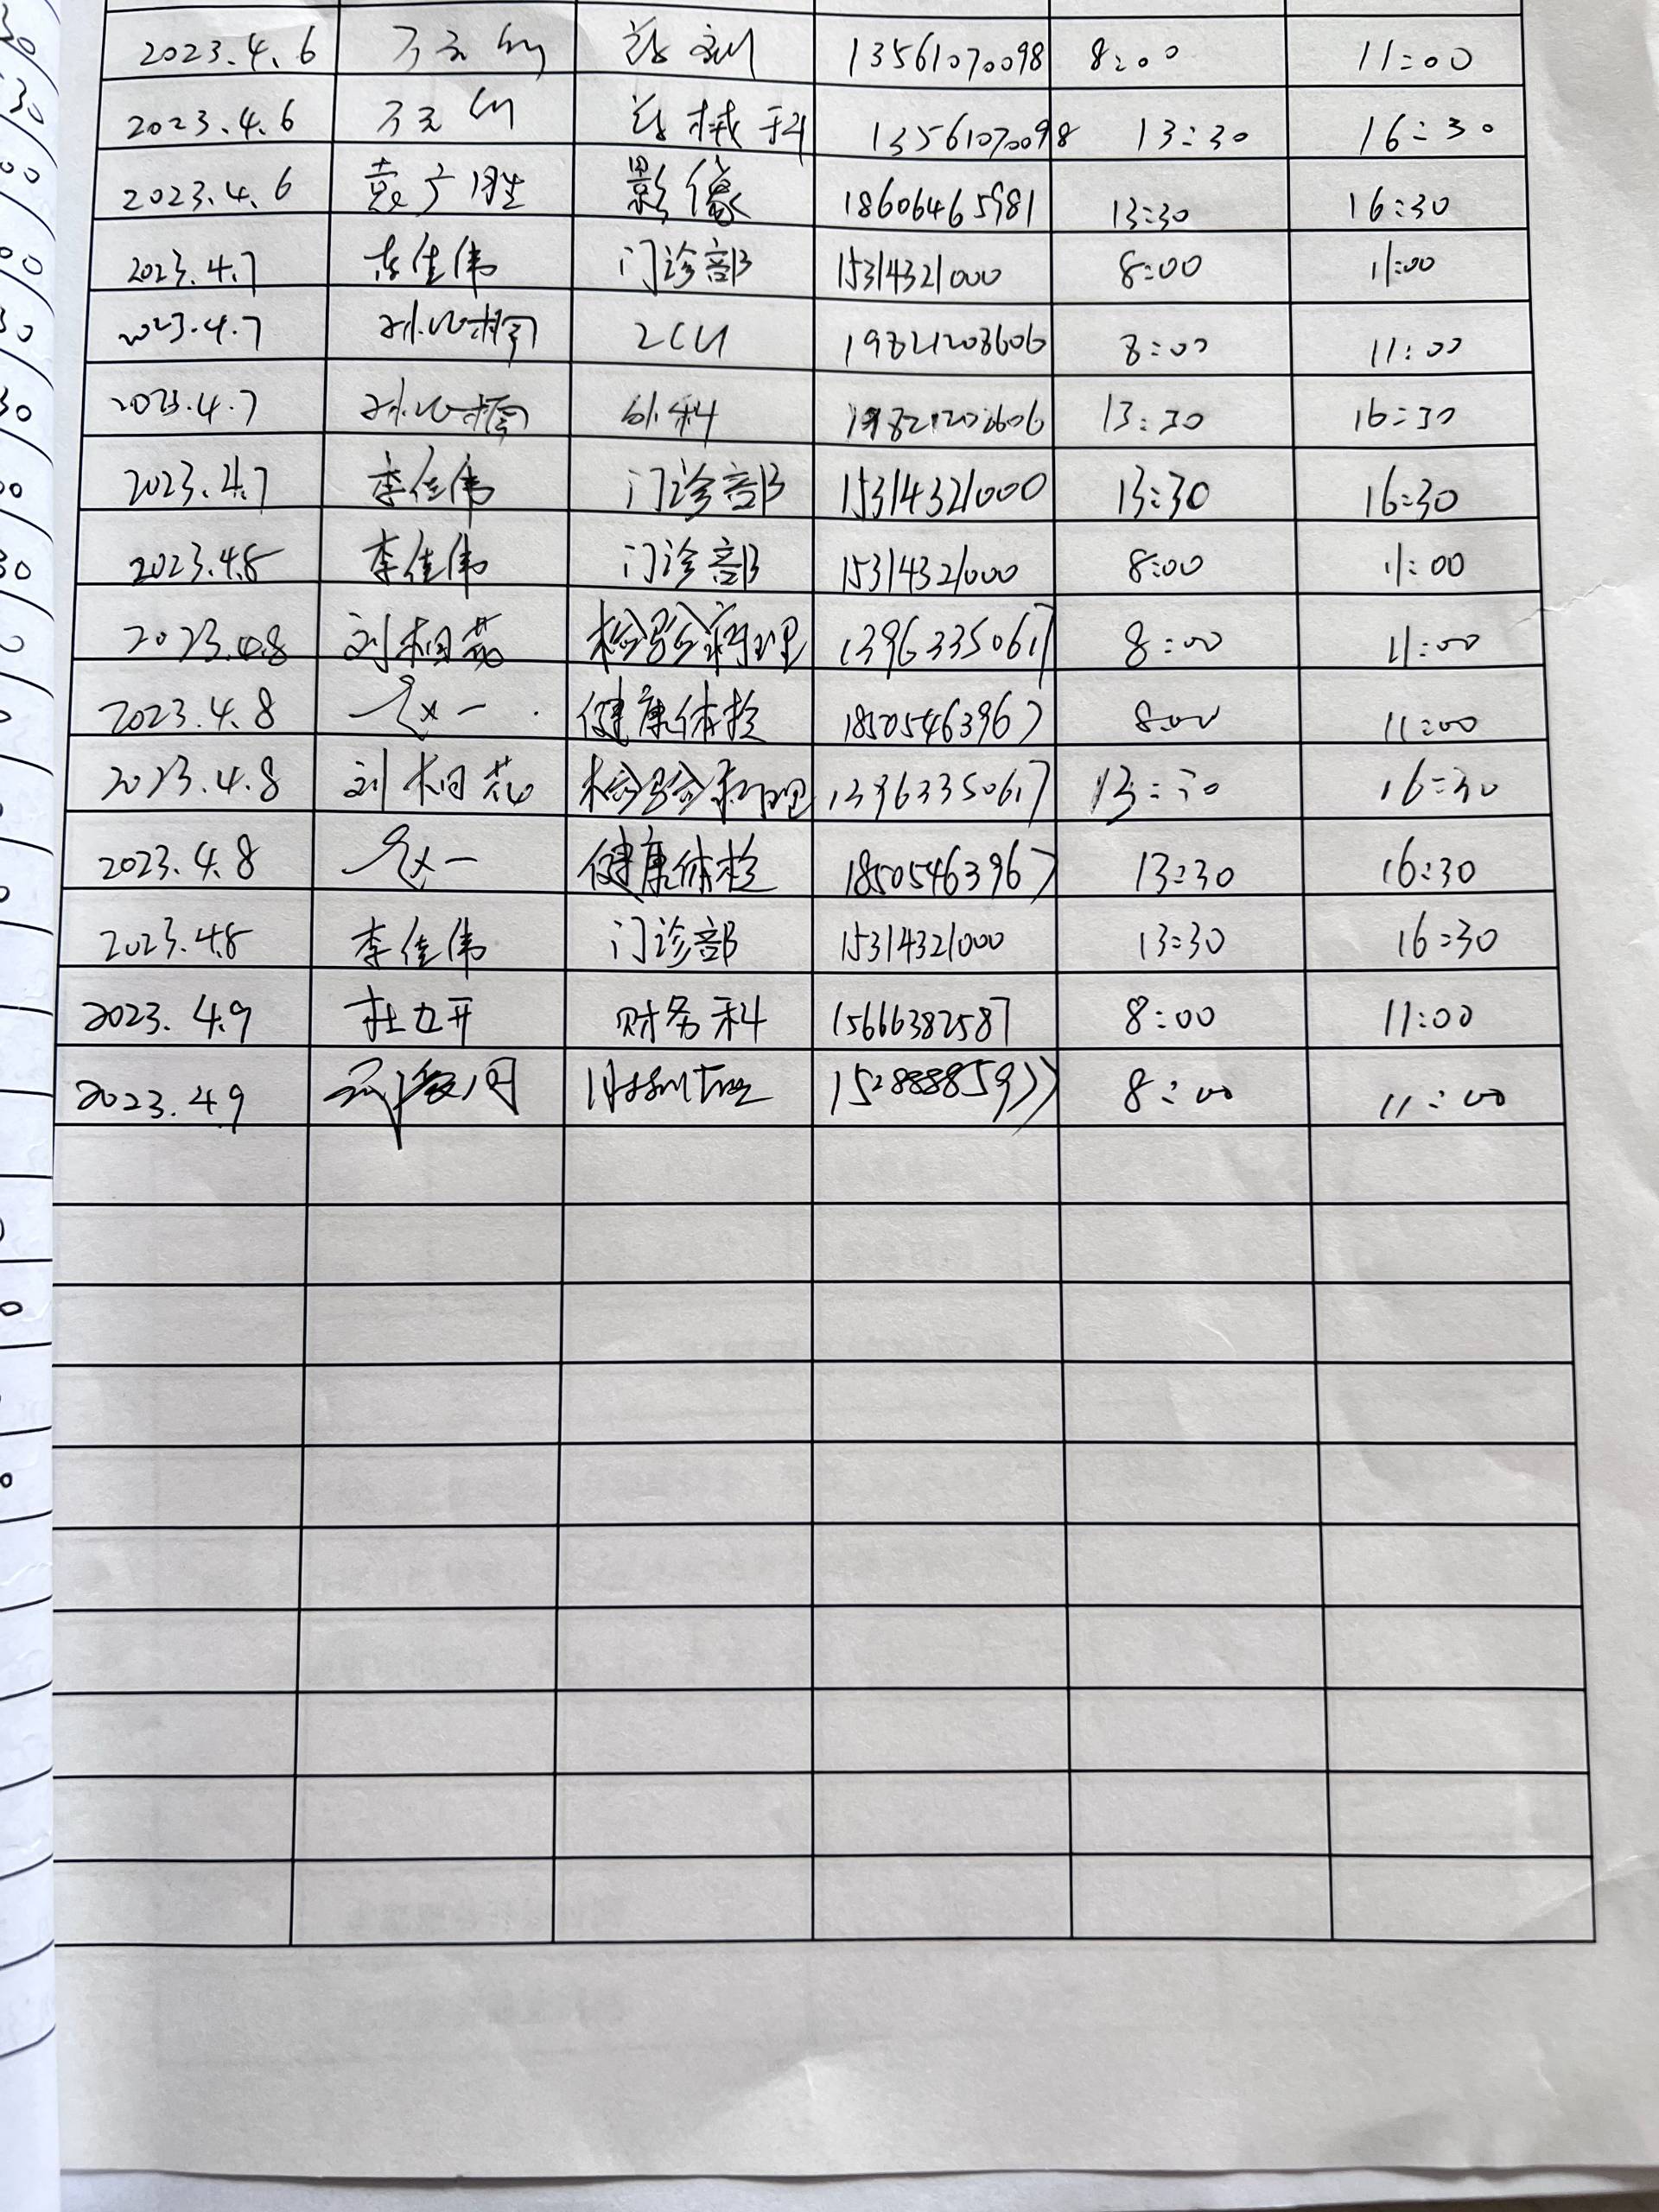 2023.4.6 13561070098 8:00 11:00
2023.4.6 械科 13561070098 13:30 16:30
2023.4.6 袁广胜 影像 18606465981 13:30 16:30
2023.4.7 李佳伟 门诊部 15314321000 8:00 11:00
2023.4.7 ICU 19821203606 8:00 11:00
2023.4.7 外科 19821203606 13:30 16:30
2023.4.7 李佳伟 门诊部 15314321000 13:30 16:30
2023.4.8 李佳伟 门诊部 15314321000 8:00 11:00
2023.4.8 刘相茹 检验病理 13963350617 8:00 11:00
2023.4.8 健康体检 18505463967 8:00 11:00
2023.4.8 刘相茹 检验病理 13963350617 13:30 16:30
2023.4.8 健康体检 18505463967 13:30 16:30
2023.4.8 李佳伟 门诊部 15314321000 13:30 16:30
2023.4.9 杜立开 财务科 15666382587 8:00 11:00
2023.4.9 15288885977 8:00 11:00